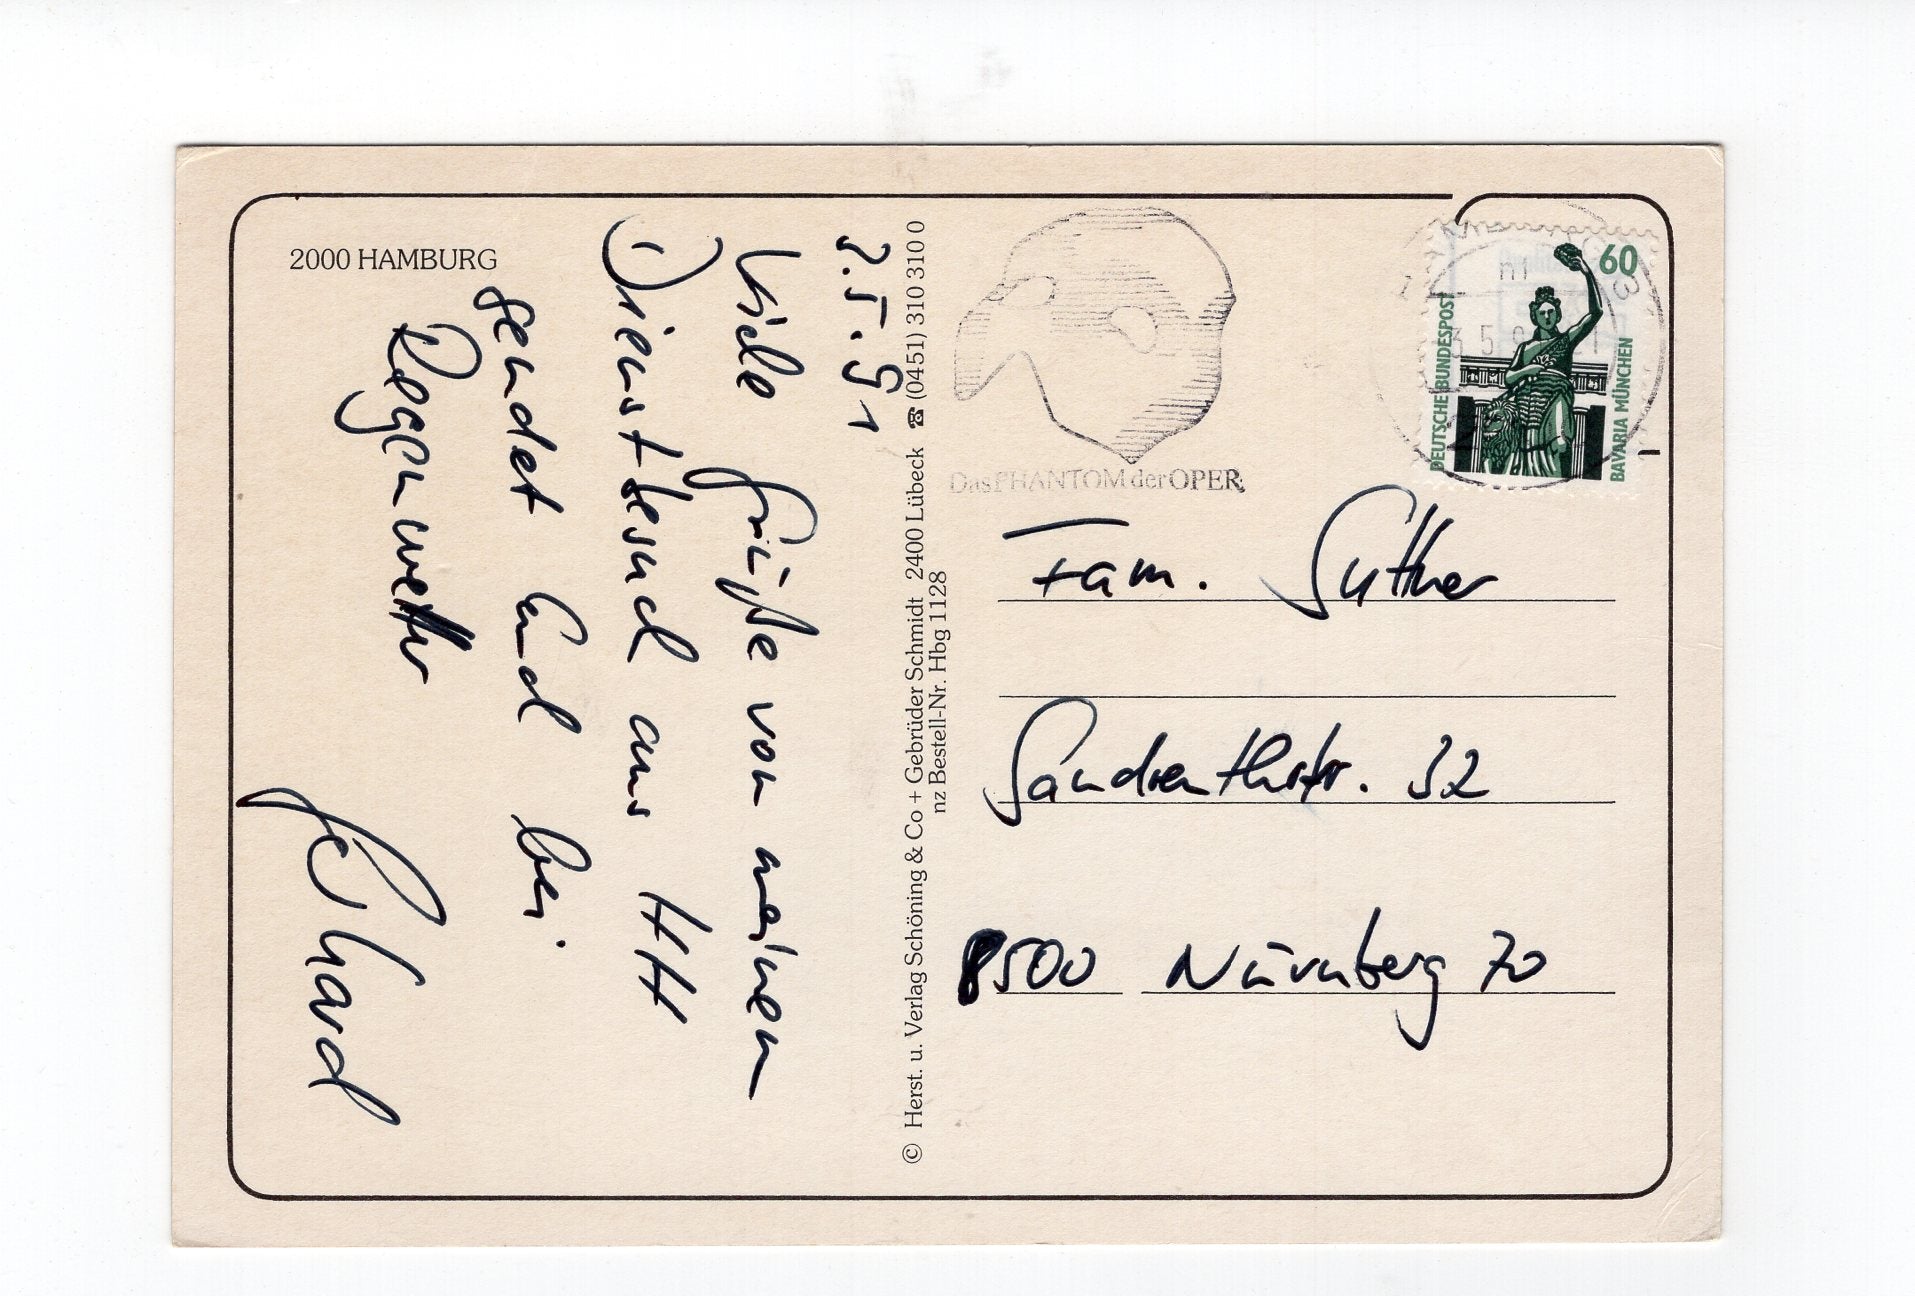 2000 HAMBURG
2.5.91
Viele Grüße von meinem
Dienstbesuch aus HH
sendet Euch bei
Regenwetter
Gerhard
© Herst. u. Verlag Schöning & Co + Gebrüder Schmidt 2400 Lübeck ☎ (0451) 310 310 0
nz Bestell-Nr. Hbg 1128
Das PHANTOM der OPER
60
DEUTSCHE BUNDESPOST
BAVARIA MÜNCHEN
Fam. Suttner
32
8500 Nürnberg 70